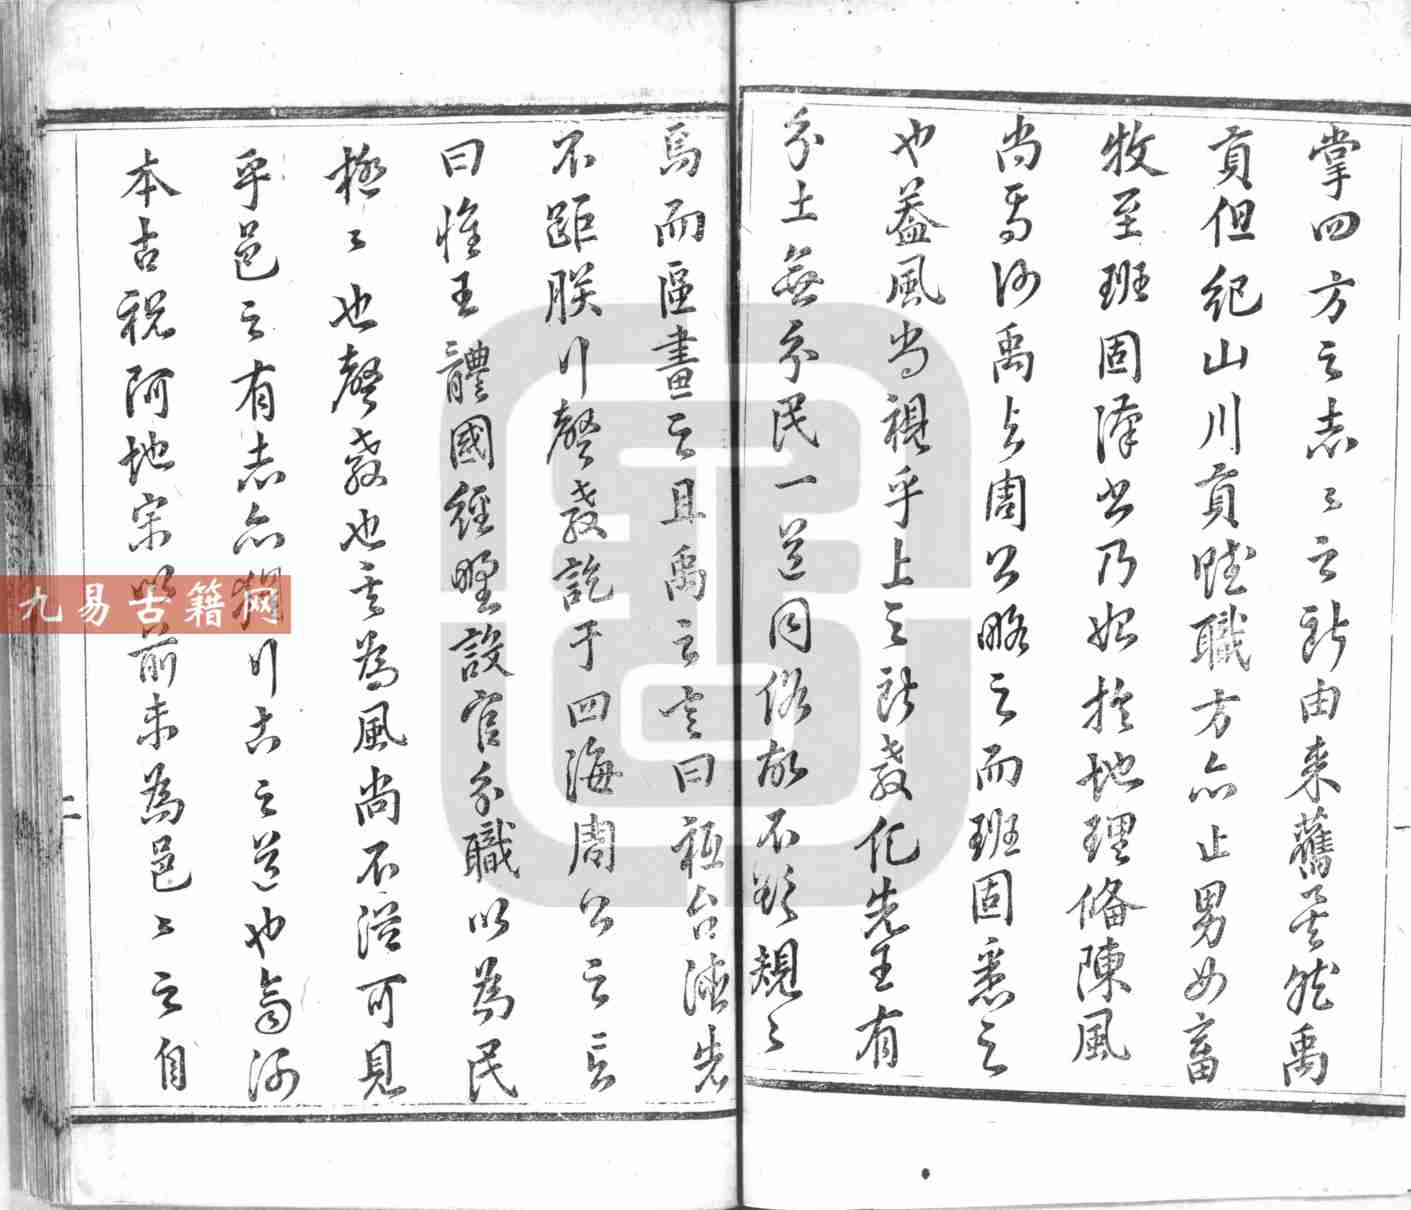 掌四方之志志之所由來舊矣然禹
貢但紀山川貢賦職方亦止男女畜
牧至班固漢書乃始於地理備陳風
尚焉何禹與周公略之而班固悉之
也蓋風尚視乎上之所教化先王有
分土無分民一道同俗故不敢規規
焉而區畫之且禹之言曰祗台德先
不距朕行聲教訖于四海周公之言
曰惟王體國經野設官分職以為民
極極也聲教也其為風尚不從可見
乎邑之有志亦猶行古之道也齊河
本古祝阿地宋以前未為邑邑之自
二
九易古籍网